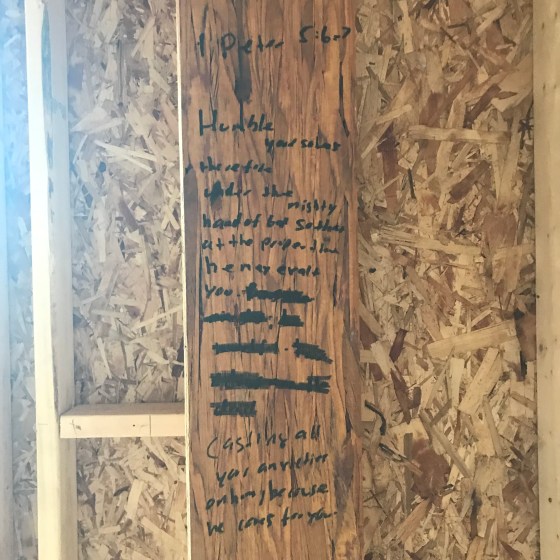 1 Peter 5:6-7
Humble
your selves
therefore
under the
mighty
hand of God So that
at the proper time
he may exalt
you
Casting all
your anxieties
on him because
he cares for you.